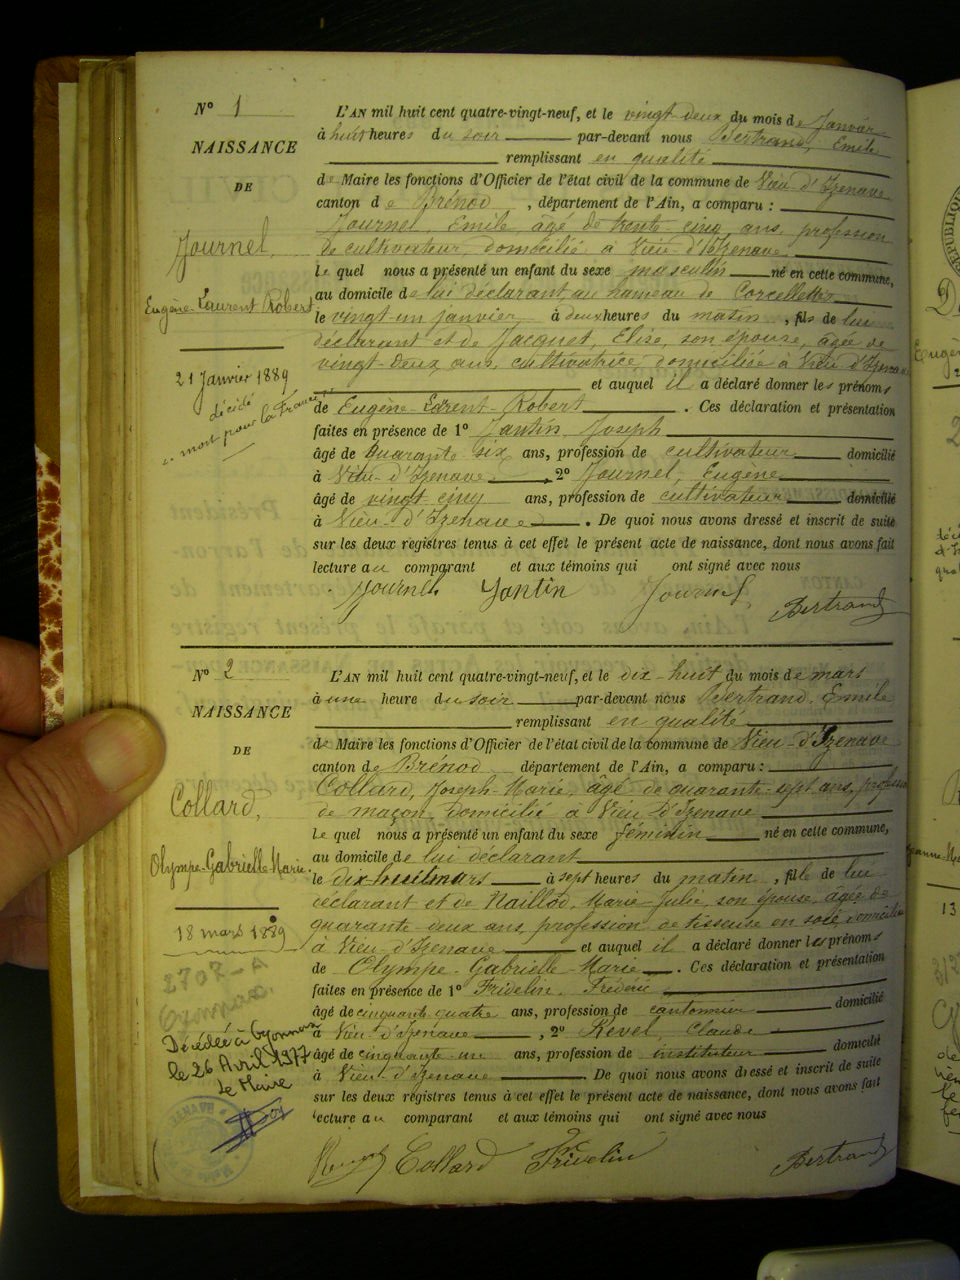 N° 1
NAISSANCE
DE
Journel,
Eugène-Laurent Robert
21 Janvier 1889
décédé
"mort pour la France"
L'AN mil huit cent quatre-vingt-neuf, et le vingt-deux du mois de Janvier
à huit heures du soir par-devant nous Bertrand, Emile
remplissant en qualité
de Maire les fonctions d'Officier de l'état civil de la commune de Vieu-d'Izenave
canton de Brénod, département de l'Ain, a comparu :
Journel, Emile, âgé de trente-cinq ans, profession
de cultivateur, domicilié à Vieu-d'Izenave
le quel nous a présenté un enfant du sexe masculin né en cette commune,
au domicile de lui déclarant au hameau de Corcellette
le vingt-un janvier à deux heures du matin, fils de lui
déclarant et de Jacquet, Elise, son épouse, âgée de
vingt-deux ans, cultivatrice, domiciliée à Vieu d'Izenave
et auquel il a déclaré donner les prénoms
de Eugène-Larent-Robert. Ces déclaration et présentation
faites en présence de 1° Jantin, Joseph
âgé de quarante six ans, profession de cultivateur domicilié
à Vieu-d'Izenave, 2° Journel, Eugène
âgé de vingt cinq ans, profession de cultivateur domicilié
à Vieu-d'Izenave. De quoi nous avons dressé et inscrit de suite
sur les deux registres tenus à cet effet le présent acte de naissance, dont nous avons fait
lecture au comparant et aux témoins qui ont signé avec nous
Journel Jantin Journel Bertrand
N° 2
NAISSANCE
DE
Collard,
Olympe-Gabrielle-Marie
18 mars 1889
2707-A
Oyonnax
Décédée à Oyonnax
le 26 Avril 1977
Le Maire
L'AN mil huit cent quatre-vingt-neuf, et le dix-huit du mois de mars
à une heure du soir par-devant nous Bertrand, Emile
remplissant en qualité
de Maire les fonctions d'Officier de l'état civil de la commune de Vieu-d'Izenave
canton de Brénod département de l'Ain, a comparu :
Collard, Joseph-Marie, âgé de quarante-sept ans, profession
de maçon, domicilié à Vieu d'Izenave
le quel nous a présenté un enfant du sexe féminin né en cette commune,
au domicile de lui déclarant
le dix-huit mars à sept heures du matin, fille de lui
déclarant et de Maillod, Marie-Julie, son épouse, âgée de
quarante-deux ans, profession de tisseuse en soie domiciliée
à Vieu-d'Izenave et auquel il a déclaré donner les prénoms
de Olympe-Gabrielle-Marie. Ces déclaration et présentation
faites en présence de 1° Frivelin, Frédéric
âgé de cinquante quatre ans, profession de cantonnier domicilié
à Vieu-d'Izenave, 2° Revel, Claude
âgé de cinquante un ans, profession de instituteur domicilié
à Vieu-d'Izenave. De quoi nous avons dressé et inscrit de suite
sur les deux registres tenus à cet effet le présent acte de naissance, dont nous avons fait
lecture au comparant et aux témoins qui ont signé avec nous
Collard Frivelin Bertrand